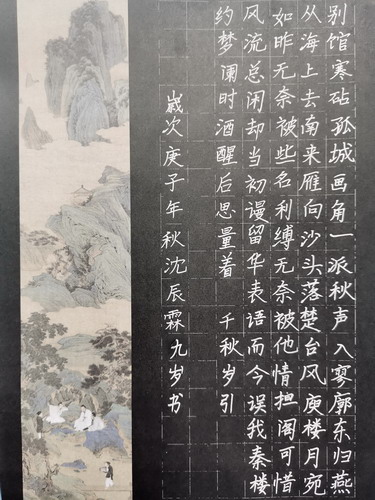 别馆寒砧孤城画角一派秋声入寥廓东归燕
从海上去南来雁向沙头落楚台风庾楼月宛
如昨无奈被些名利缚无奈被他情担阁可惜
风流总闲却当初谩留华表语而今误我秦楼
约梦阑时酒醒后思量着 千秋岁引
嵗次庚子年秋沈辰霖九岁书